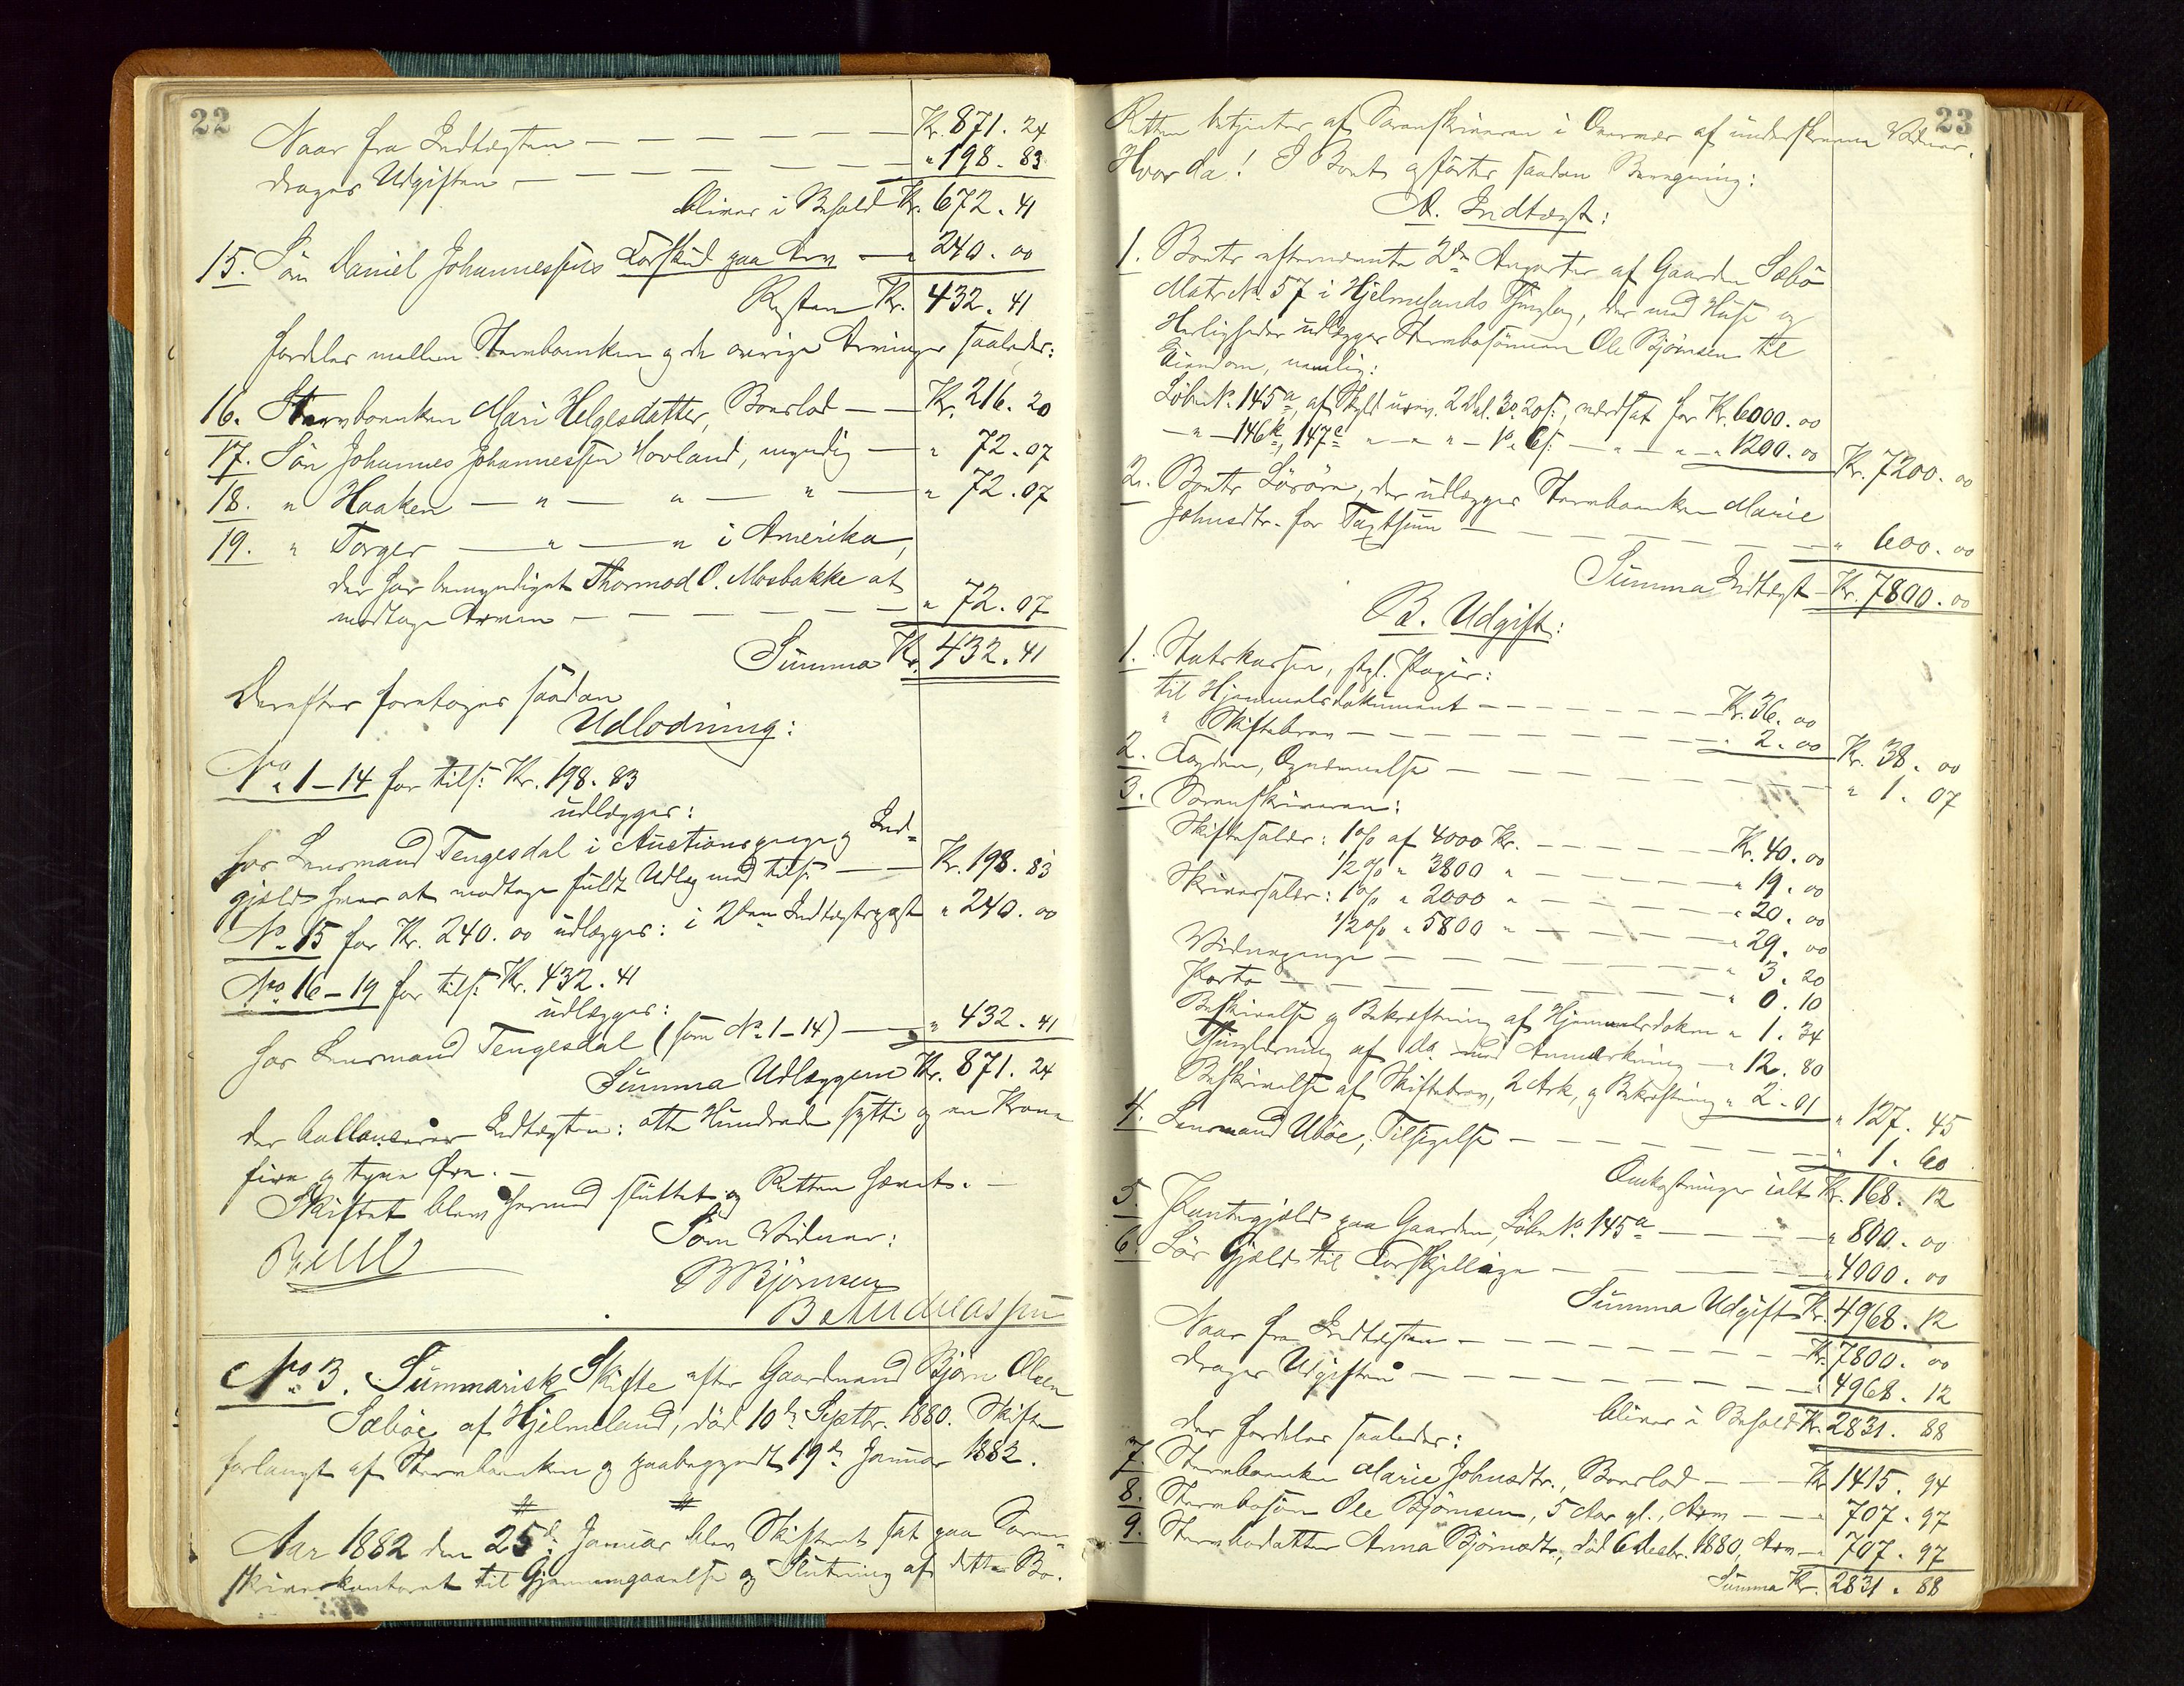 22
Naar fra Indtægten — — — — — Kr. 871. 24
drages Udgiften — — — — — " 198. 83
bliver i Behold Kr. 672. 41
15. Søn Daniel Johannessens Forskud paa Arv — " 240. 00
Resten Kr. 432. 41
fordeles mellem Stervboenken og de øvrige Arvinger saaledes:
16. Stervboenken Mari Helgesdatter, Boeslod — — Kr. 216. 20
17. Søn Johannes Johannessen Hovland, myndig — " 72. 07
18. " Haaken — " — " — " — " 72. 07
19. " Torger — " — " i Amerika,
der har bemyndiget Thormod O. Mosbakke at
modtage Arven — — — — — " 72. 07
Summa Kr. 432. 41
Derefter foretoges saadan
Udlodning:
No. 1–14 for tils: Kr. 198. 83
udlægges:
hos Lensmand Tengesdal i Auctionspenge og Ind=
gjæld hver at modtage fuldt Udlæg med tils: — — Kr. 198. 83
No. 15 for Kr. 240. 00 udlægges: i 2den Indtægtspost " 240. 00
No. 16–19 for tils: Kr. 432. 41
udlægges:
hos Lensmand Tengesdal (som No. 1–14) — " 432. 41
Summa Udlæggene Kr. 871. 24
der ballancerer Indtægten: otte Hundrede sytti og en Krone
fire og tyve Øre. —
Skiftet blev hermed sluttet og Retten hævet. —
Som Vidner:
BBjørnsen
B Andreassen
No. 3. Summarisk Skifte efter Gaardmand Bjørn Olsen
Sæbøe af Hjelmeland, død 10de Septbr. 1880. Skifte
forlangt af Stervboenken og paabegyndt 19de Januar 1882.
Aar 1882 den 25de Januar blev Skifteret sat paa Soren=
skriverkontoret til Gjennemgaaelse og Slutning af dette Bo.
23
Retten betjentes af Sorenskriveren i Overvær af underskrevne Vidner.
Hvor da! I Boet opførtes saadan Beregning:
A. Indtægt:
1. Boets efternævnte 2de Anparter af Gaarden Sæbø
Matr. No. 57 i Hjelmelands Thinglag, der med Huse og
Herligheder udlægges Stervbosønnen Ole Bjørnsen til
Eiendom, nemlig:
Løbe No. 145a, af Skyld urev. 2 Dal. 3 O. 20 s:, værdsat for Kr. 6000. 00
— " — 146k, 147c " — " — " — 1 O. 6 s: — " — " — " 1200. 00 Kr. 7200. 00
2. Boets Løsøre, der udlægges Stervboenken Marie
Johnsdtr. for Taxtsum — — — — — " 600. 00
Summa Indtægt — Kr. 7800. 00
B. Udgift:
1. Statskassen, stpl. Papir:
til Hjemmelsdokument — — — — — Kr. 36. 00
" Skiftebrev — — — — — " 2. 00 Kr. 38. 00
2. Fogden, Opnævnelse — — — — — " 1. 07
3. Sorenskriveren:
Skiftesalær: 1 o/o af 4000 Kr. — — — — Kr. 40. 00
1/2 o/o " 3800 " — — — — " 19. 00
Skriversalær: 1 o/o " 2000 " — — — — " 20. 00
1/2 o/o " 5800 " — — — — " 29. 00
Vidnepenge — — — — — " 3. 20
Porto — — — — — " 0. 10
Beskrivelse og Bekræftning af Hjemmelsdokum " 1. 34
Thinglæsning af do. med Anmærkning — " 12. 80
Beskrivelse af Skiftebrev, 2 Ark, og Bekræftning " 2. 01 " 127. 45
4. Lensmand Uböe, Tilsigelse — — — — — " 1. 60
Omkostninger ialt Kr. 168. 12
5. Pantegjæld paa Gaarden, Løbe No. 145a — — — — " 800. 00
6. Løs Gjæld til Forskjellige — — — — — " 4000. 00
Summa Udgift Kr. 4968. 12
Naar fra Indtægten — — — — — Kr. 7800. 00
drages Udgiften — — — — — " 4968. 12
bliver i Behold Kr. 2831. 88
der fordeles saaledes:
7. Stervboenken Marie Johnsdtr., Boeslod — — Kr. 1415. 94
8. Stervbosøn Ole Bjørnsen, 5 Aar gl., Arv — — " 707. 97
9. Stervbodatter Anna Bjørnsdtr., død 6 Decbr. 1880, Arv — " 707. 97
Summa Kr. 2831. 88